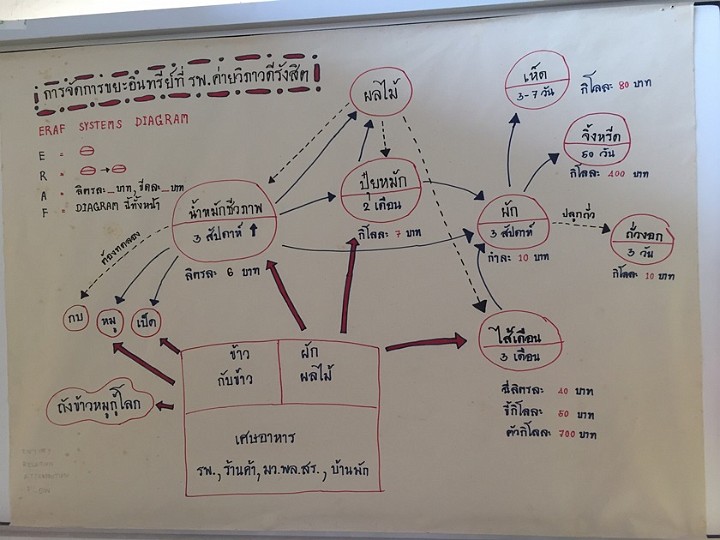 การจัดการขยะอินทรีย์ที่ รพ.ค่ายวิภาวดีรังสิต
ERAF SYSTEMS DIAGRAM
E =
R = →
A = ลิตรละ_บาท, ขีดละ_บาท
F = DIAGRAM นี้ทั้งหน้า
ผลไม้
เห็ด
3-7 วัน
กิโลละ 80 บาท
จิ้งหรีด
50 วัน
กิโลละ 400 บาท
น้ำหมักชีวภาพ
3 สัปดาห์ ↑
ลิตรละ 6 บาท
ปุ๋ยหมัก
2 เดือน
กิโลละ 7 บาท
ผัก
3 สัปดาห์
กำละ 10 บาท
ปลูกถั่ว
ถั่วงอก
3 วัน
กิโลละ 10 บาท
ต้องทดลอง
กบ
หมู
เป็ด
ไส้เดือน
3 เดือน
ฉี่ลิตรละ 40 บาท
ขี้กิโลละ 50 บาท
ตัวกิโลละ 700 บาท
ถังข้าวหมูกู้โลก
ข้าว
กับข้าว
ผัก
ผลไม้
เศษอาหาร
รพ., ร้านค้า, มว.พล.สร., บ้านพัก